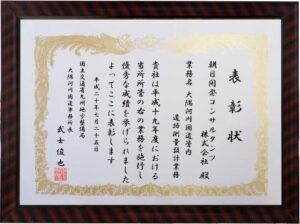 表彰状
朝日開発コンサルタンツ
株式会社 殿
業務名 大隅河川国道管内
道路測量設計業務
貴社は平成十九年度における
当所所管の右の業務を施行し
優秀な成績を挙げられました
よってここに表彰します
平成二十年七月二十五日
国土交通省九州地方整備局
大隅河川国道事務所長
武士俊也